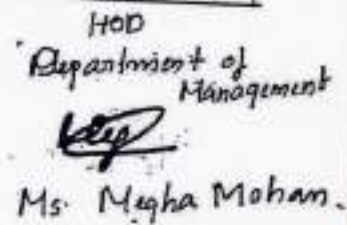 HOD
Department of
Management
Ms. Megha Mohan.